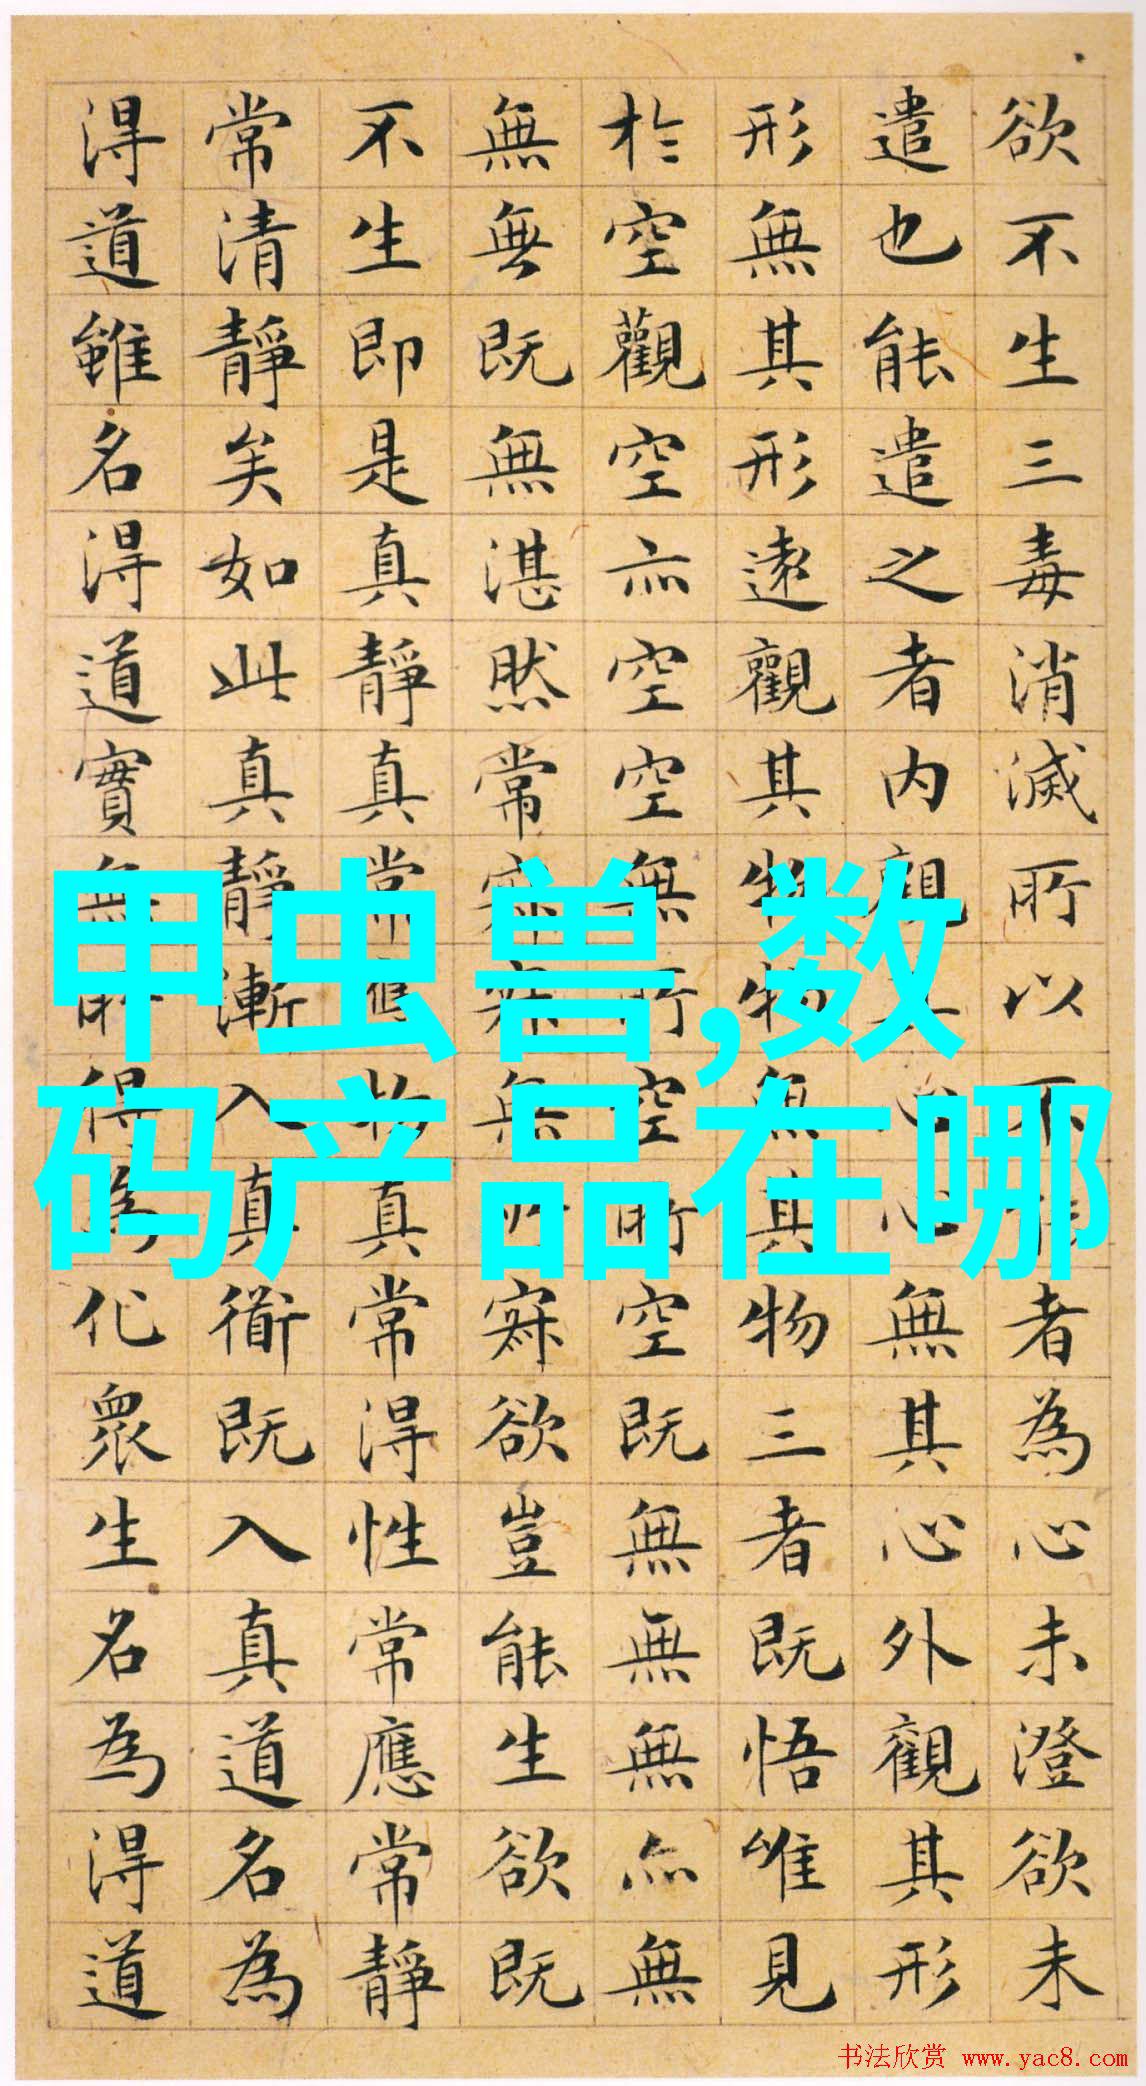 欲不生三毒消滅所以不能者為心未澄欲未
遣也能遣之者内觀其心心無其心外觀其形
形無其形遠觀其物物無其物三者既悟唯見
於空觀空亦空空無所空所空既無無無亦無
無無既無湛然常寂寂無所寂欲豈能生欲既
不生即是真靜真常應物真常得性常應常靜
常清靜矣如此真靜漸入真衜既入真道名為
得道雖名得道實無所得為化眾生名為得道
甲虫兽,数
码产品在哪
书法欣赏 www.yac8.com